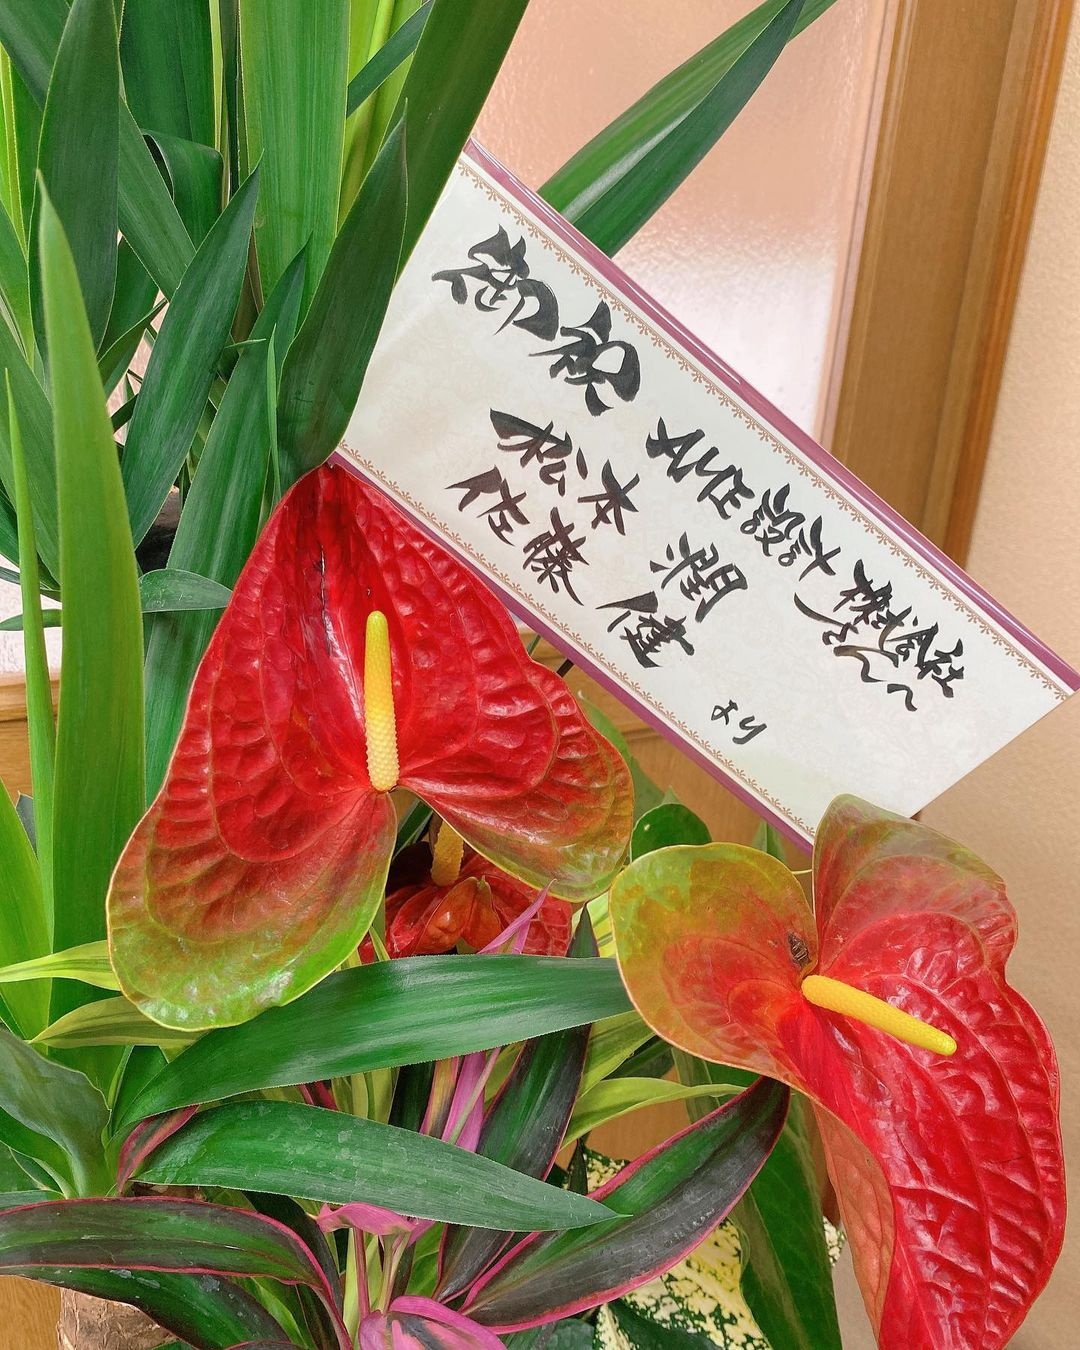 御祝
AME設計株式会社さんへ
松本 潤
佐藤 健
より